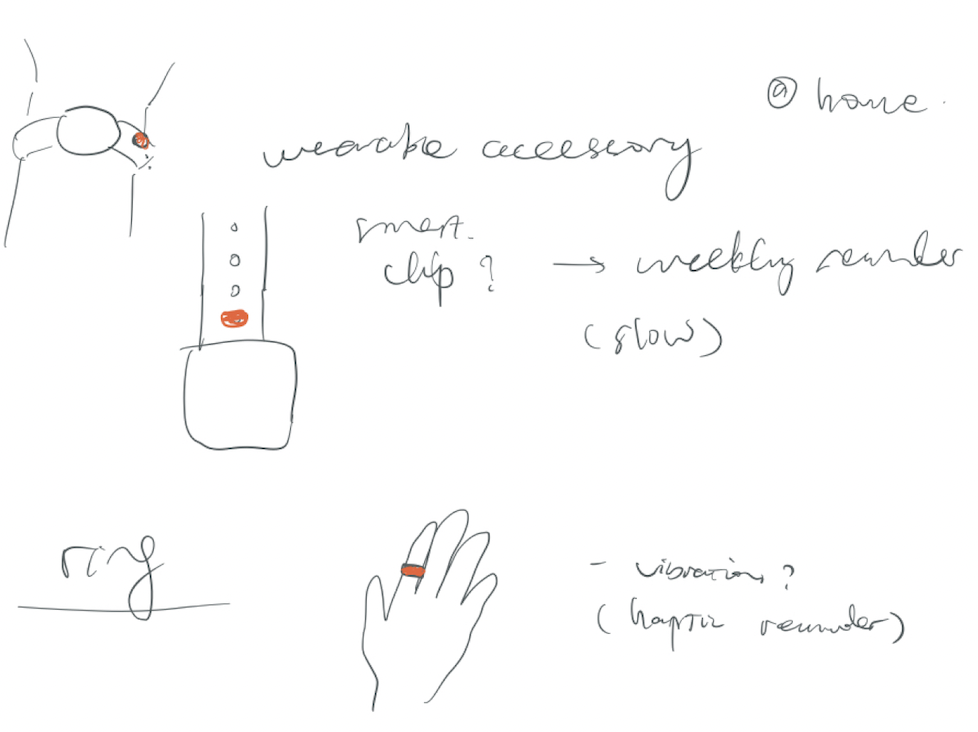 @ home.
wearable accessory
smart
chip? → weekly reminder
(slow)
ring
- vibration?
(haptic reminder)